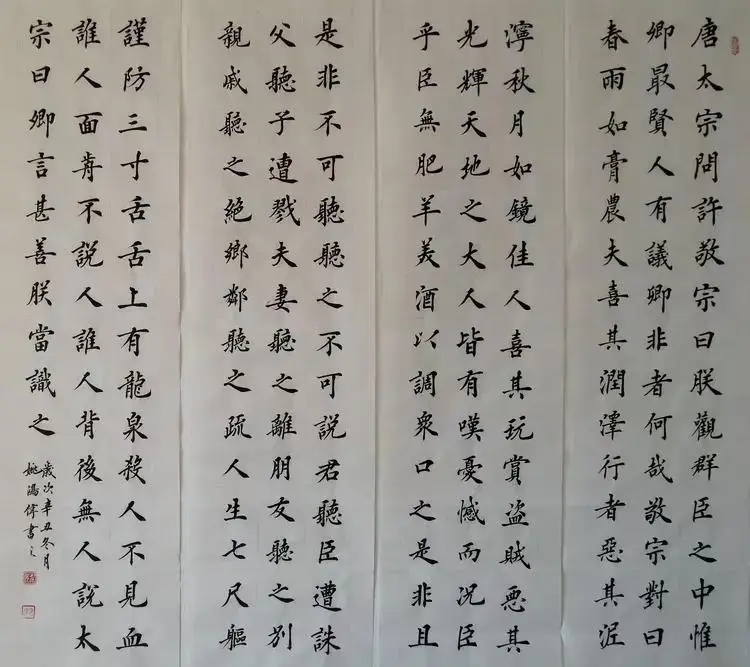 唐太宗問許敬宗曰朕觀群臣之中惟
卿最賢人有議卿非者何哉敬宗對曰
春雨如膏農夫喜其潤澤行者惡其泥
濘秋月如鏡佳人喜其玩賞盜賊惡其
光輝天地之大人皆有嘆憂憾而況臣
乎臣無肥羊美酒以調眾口之是非且
是非不可聽聽之不可說君聽臣遭誅
父聽子遭戮夫妻聽之離朋友聽之別
親戚聽之絕鄉鄰聽之疏人生七尺軀
謹防三寸舌舌上有龍泉殺人不見血
誰人面前不說人誰人背後無人說太
宗曰卿言甚善朕當識之
歲次辛丑冬月
姚偉書之